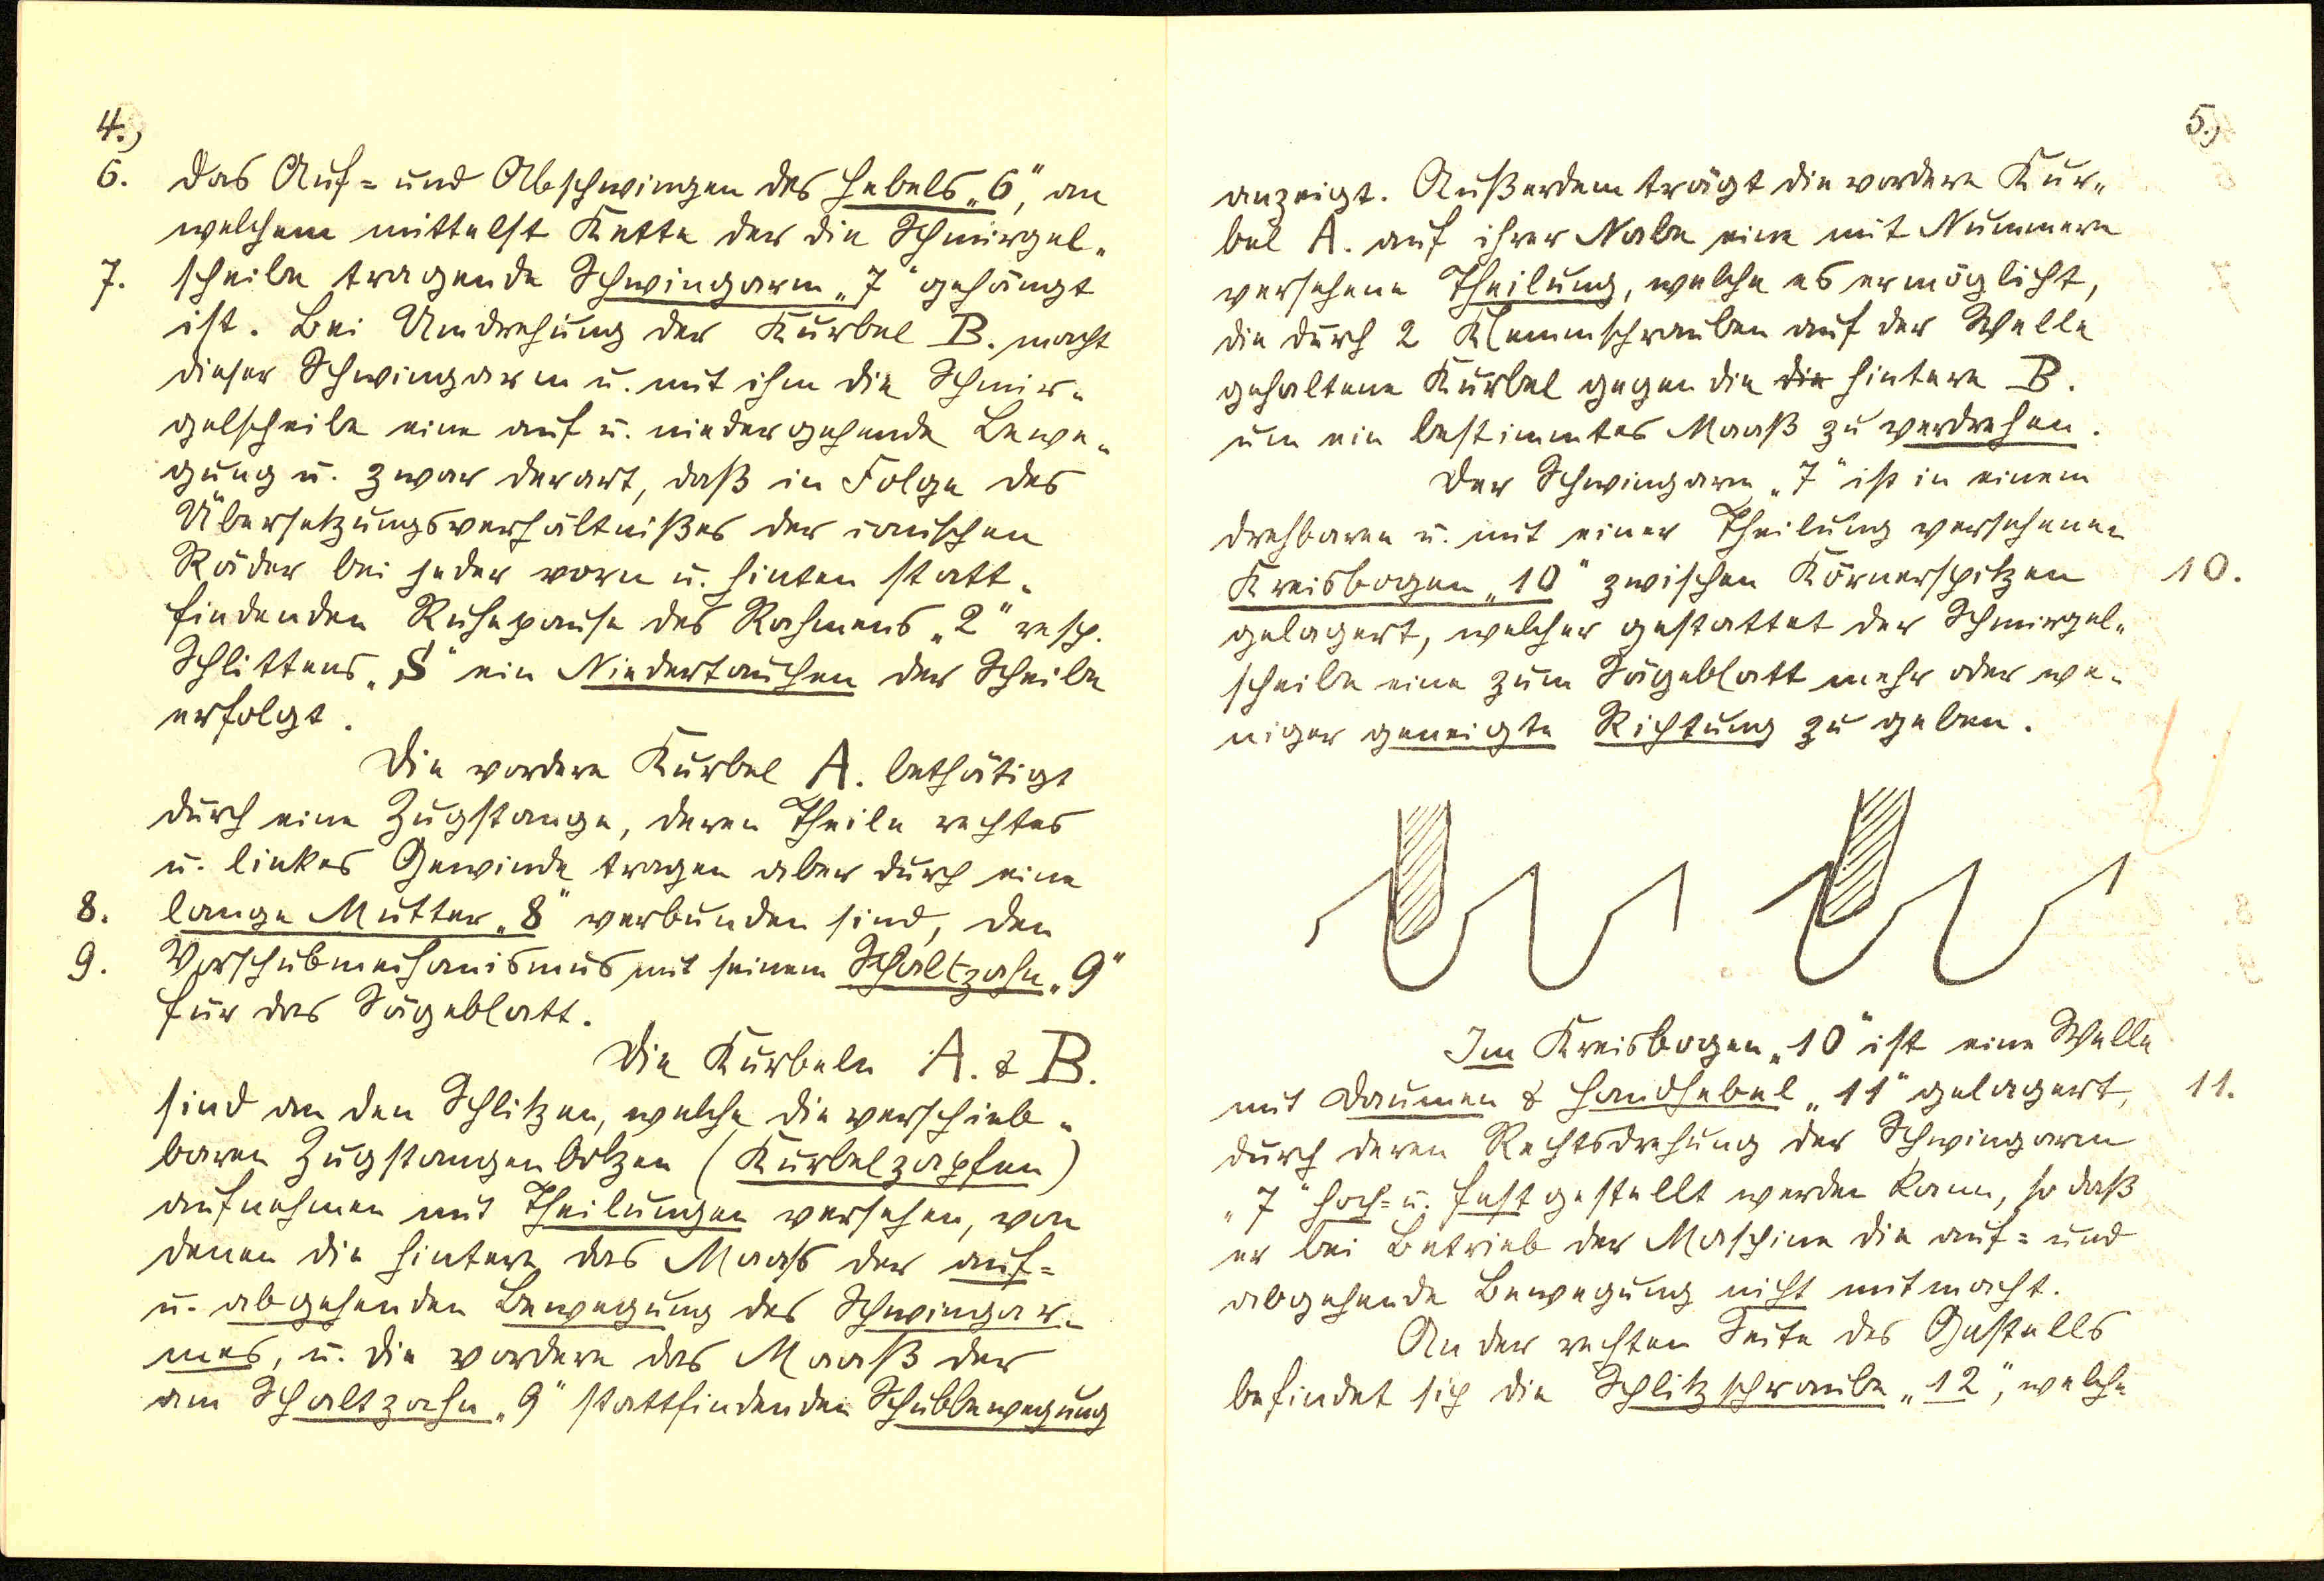 4.)
6. das Auf= und Abschwingen des Hebels „6", an
welchem mittelst Kette der die Schmirgel-
7. scheibe tragende Schwingarm „7" gehängt
ist. Bei Umdrehung der Kurbel B. macht
dieser Schwingarm u. mit ihm die Schmir-
gelscheibe eine auf u. niedergehende Bewe-
gung u. zwar derart, daß in Folge des
Übersetzungsverhältnißes der conischen
Räder bei jeder vorn u. hinten statt-
findenden Ruhepause des Rahmens „2" resp.
Schlittens „S" ein Niedertauchen der Scheibe
erfolgt.
Die vordere Kurbel A. bethätigt
durch eine Zugstange, deren Theile rechtes
u. linkes Gewinde tragen aber durch eine
8. lange Mutter „8" verbunden sind, den
9. Vorschubmechanismus mit seinem Schaltzahn „9"
für das Sägeblatt.
Die Kurbeln A. & B.
sind an den Schlitzen, welche die verschieb-
baren Zugstangenbolzen (Kurbelzapfen)
aufnehmen mit Theilungen versehen, von
denen die hintere das Maaß der auf=
u. abgehenden Bewegung des Schwingar-
mes, u. die vordere das Maaß der
am Schaltzahn „9" stattfindenden Schubbewegung
5.)
anzeigt. Außerdem trägt die vordere Kur-
bel A. auf ihrer Nabe eine mit Nummern
versehene Theilung, welche es ermöglicht,
die durch 2 Klemmschrauben auf der Welle
gehaltene Kurbel gegen die die hintere B.
um ein bestimmtes Maaß zu verdrehen.
Der Schwingarm „7" ist in einem
drehbaren u. mit einer Theilung versehenen
Kreisbogen „10" zwischen Körnerspitzen 10.
gelagert, welcher gestattet der Schmirgel-
scheibe eine zum Sägeblatt mehr oder we-
niger geneigte Richtung zu geben.
Im Kreisbogen „10" ist eine Welle
mit Daumen & Handhebel „11" gelagert, 11.
durch deren Rechtsdrehung der Schwingarm
„7" hoch= u. festgestellt werden kann, so daß
er bei Betrieb der Maschine die auf= und
abgehende Bewegung nicht mitmacht.
An der rechten Seite des Gestells
befindet sich die Schlitzschraube „12", welche